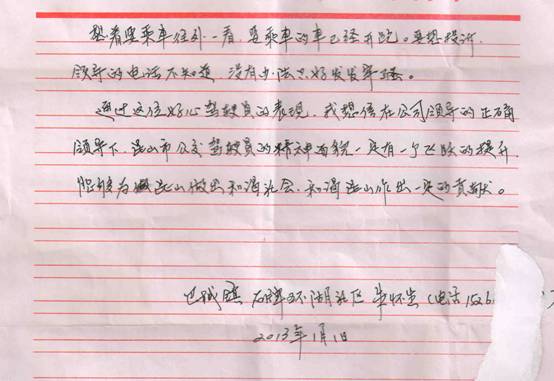 想着要乘车往外一看，要乘车的车已经开跑。要想找你
领导的电话不知道，没有办法只好发发牢骚。
通过这位好心驾驶员的表现，我想信在公司领导的正确
领导下，昆山市公交驾驶员的精神面貌一定有一个飞跃的提升
能够为昆山做出和谐社会、和谐昆山作出一定的贡献。
巴城镇 石牌环湖社区 朱怀生（电话 1526
2013年1月1日